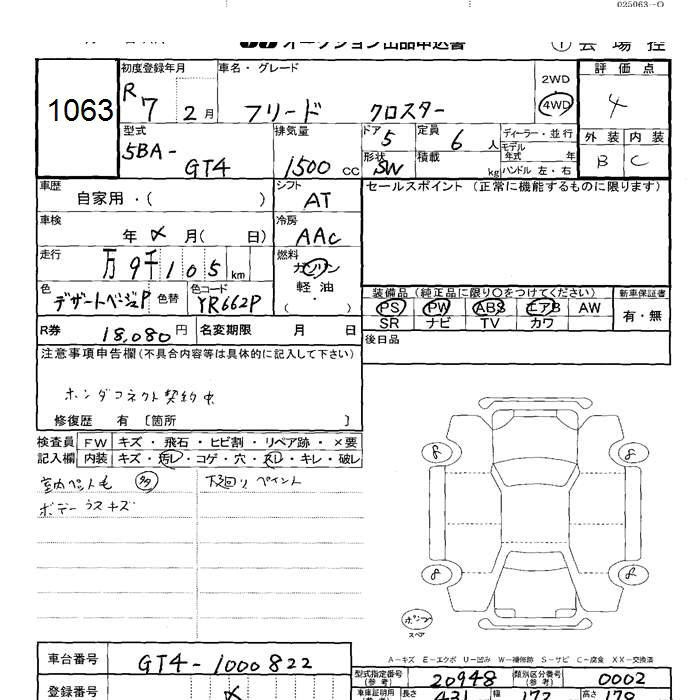 025063-0
オークション出品申込書 ① 会場控
1063
初度登録年月 R 7 2月
車名・グレード フリード クロスター
2WD 4WD
評価点 4
外装 内装
B C
型式 5BA- GT4
排気量 1500 cc
ドア 5
定員 6人
形状 SW
積載 kg
ディーラー・並行
モデル年式 年
ハンドル 左・右
車歴 自家用・( )
シフト AT
セールスポイント (正常に機能するものに限ります)
車検 年 メ 月( 日)
冷房 AAC
走行 万 9千 1 0 5 km
燃料 ガソリン
軽油
( )
色 デザートベージュP 色替
色コード YR662P
装備品 (純正品に限り○をつけてください) 新車保証書
PS PW ABS エアB AW 有・無
SR ナビ TV カワ
R券 18,080円 名変期限 月 日
後日品
注意事項申告欄(不具合内容等は具体的に記入して下さい)
ホンダコネクト契約中
修復歴 有 〔箇所 〕
検査員 FW キズ・飛石・ヒビ割・リペア跡・×要
記入欄 内装 キズ・汚レ・コゲ・穴・スレ・キレ・破レ
室内ペット毛 多 下廻リ ペイント
ボデーうスキズ
8 8
8 8
スペア
A-キズ E-エクボ U-凹み W-補修跡 S-サビ C-腐食 XX-交換済
車台番号 GT4-1000822
型式指定番号(参考) 20948 類別区分番号(参考) 0002
登録番号 メ
車庫証明用 長さ 431 幅 172 高さ 178